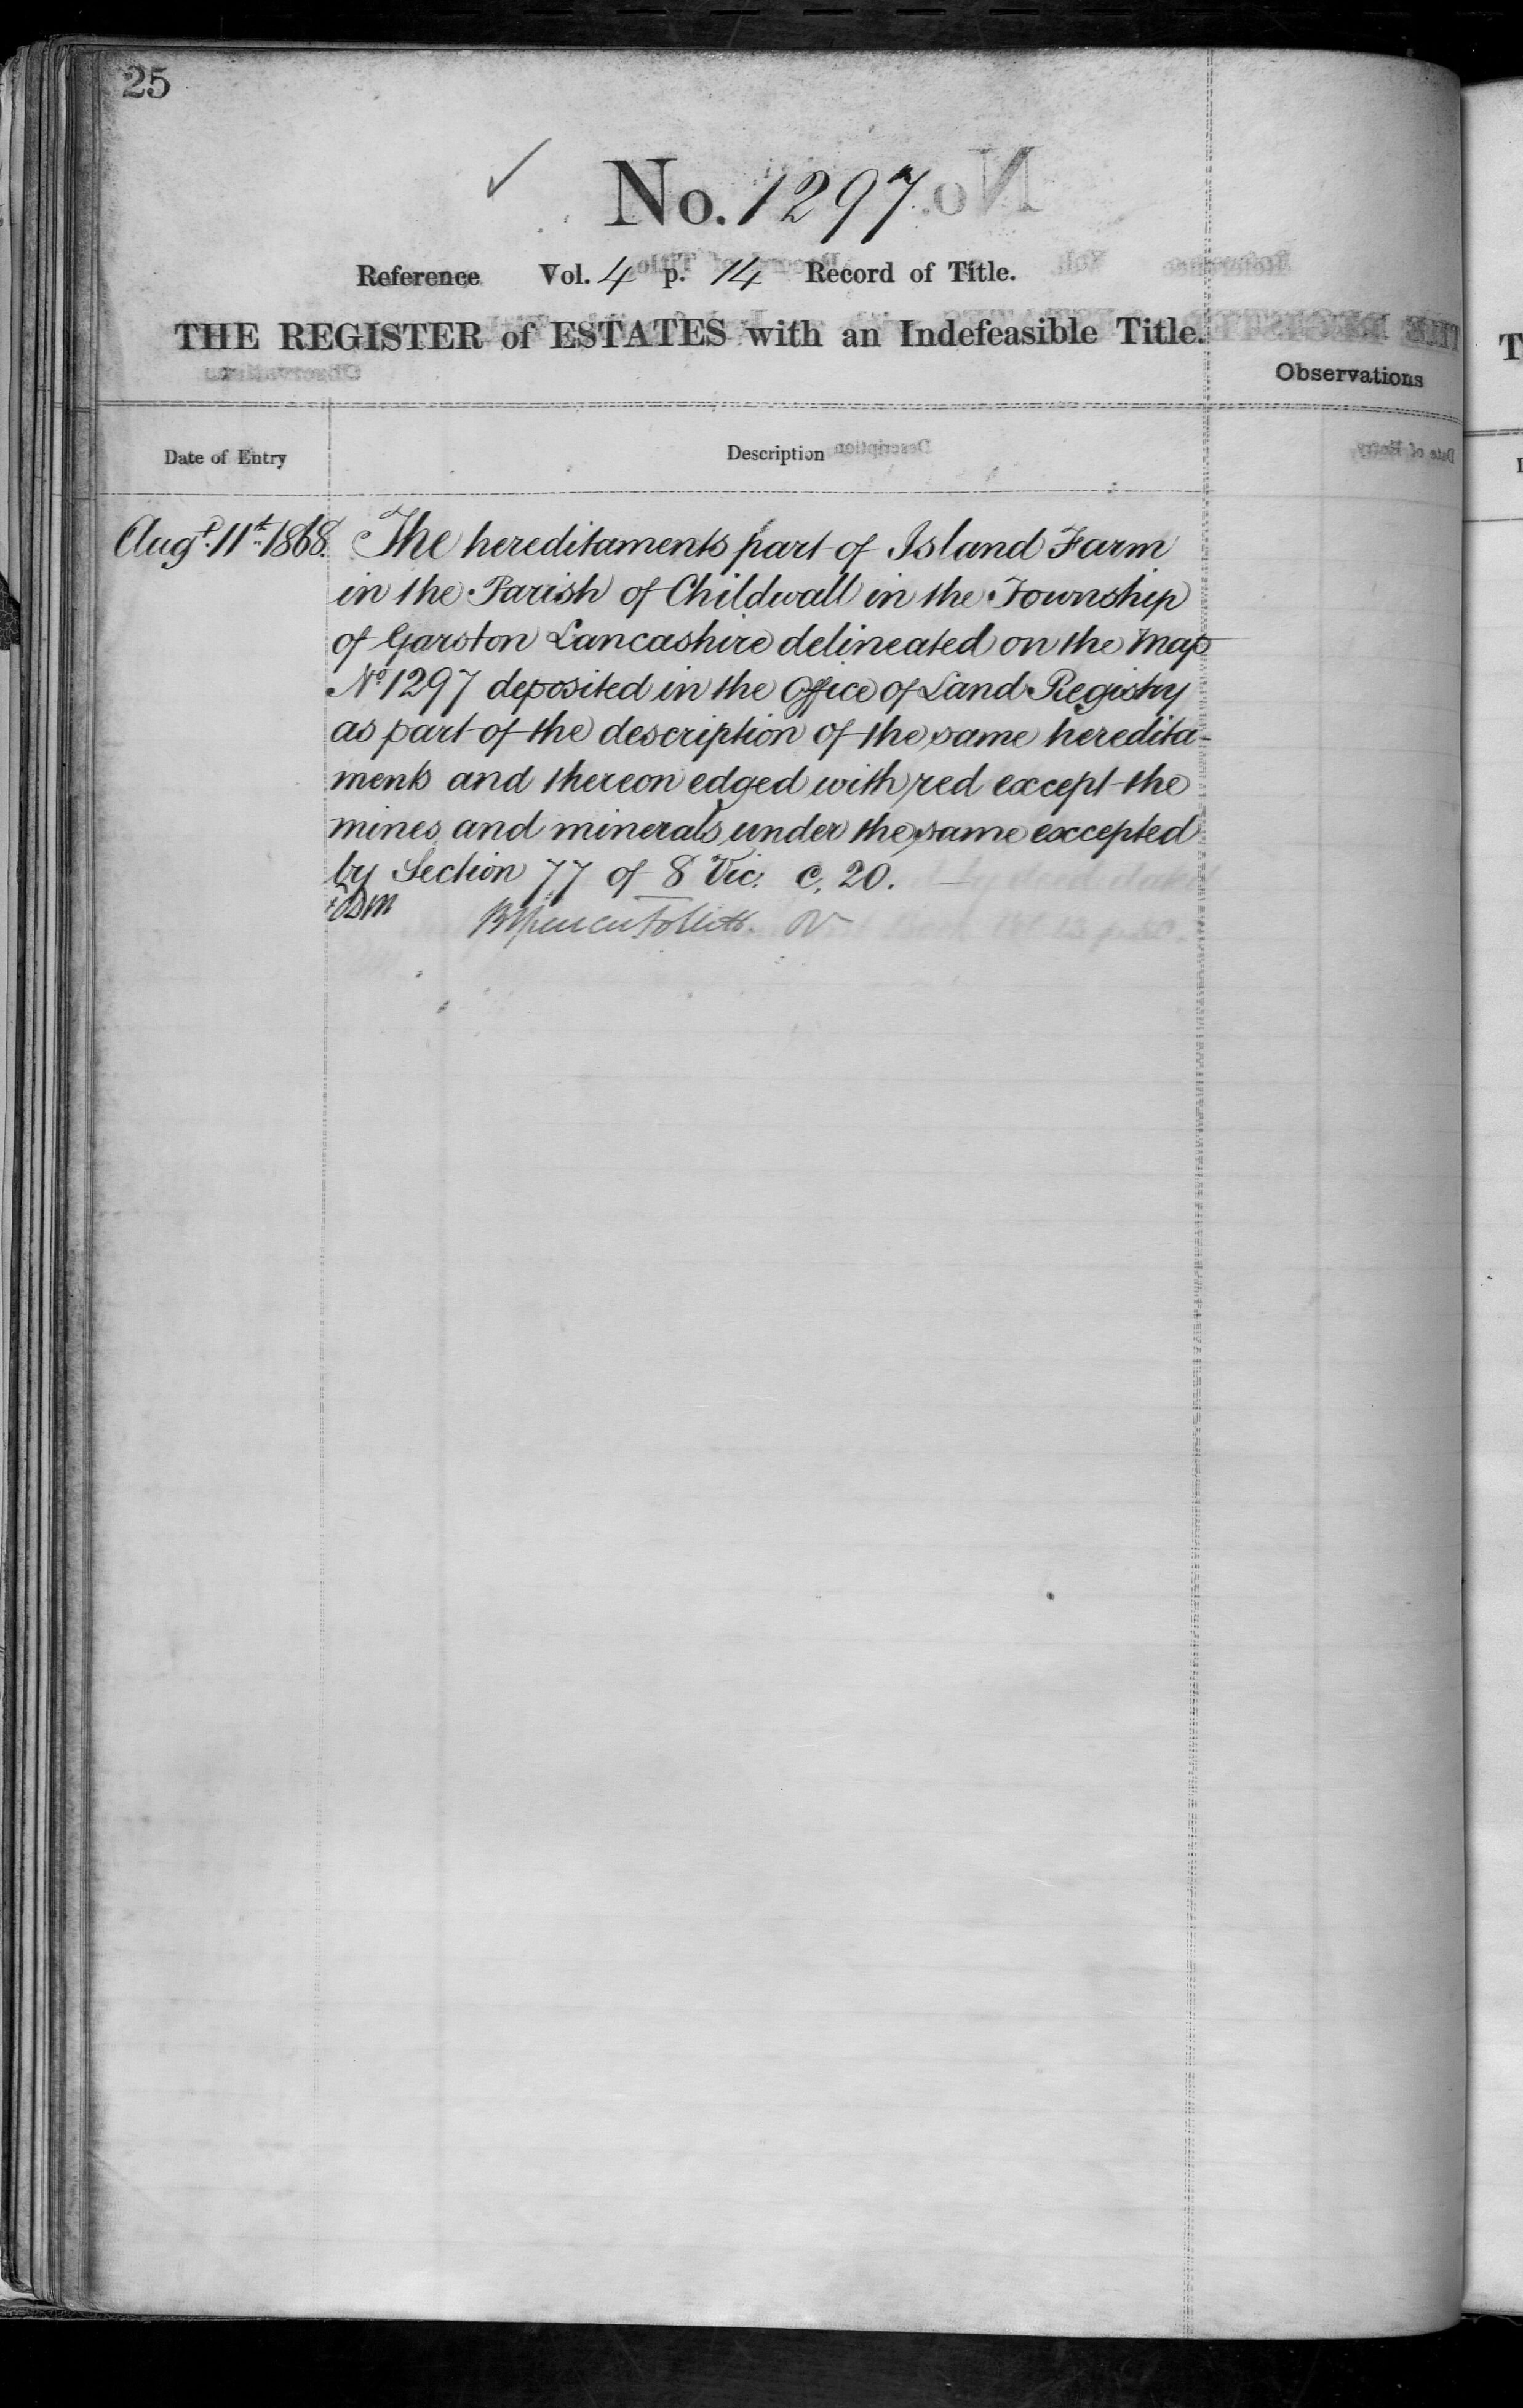 25
No. 1297
Reference Vol. 4 p. 14 Record of Title.
THE REGISTER of ESTATES with an Indefeasible Title.
Observations
Date of Entry Description
Augt. 11th 1868. The hereditaments part of Island Farm
in the Parish of Childwall in the Township
of Garston Lancashire delineated on the Map
No 1297 deposited in the Office of Land Registry
as part of the description of the same heredita-
ments and thereon edged with red except the
mines and minerals under the same excepted
by Section 77 of 8 Vic. c. 20.